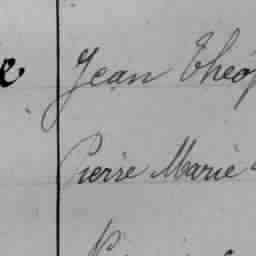 Jean Théop
Pierre Marie